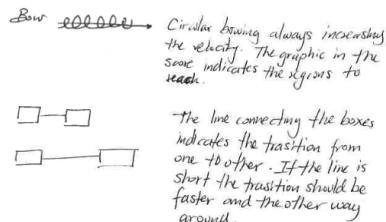 Bow
Circular bowing always increasing
the velocity. The graphic in the
score indicates the regions to
reach.
The line connecting the boxes
indicates the trasition from
one to other. If the line is
short the trasition should be
faster and the other way
around